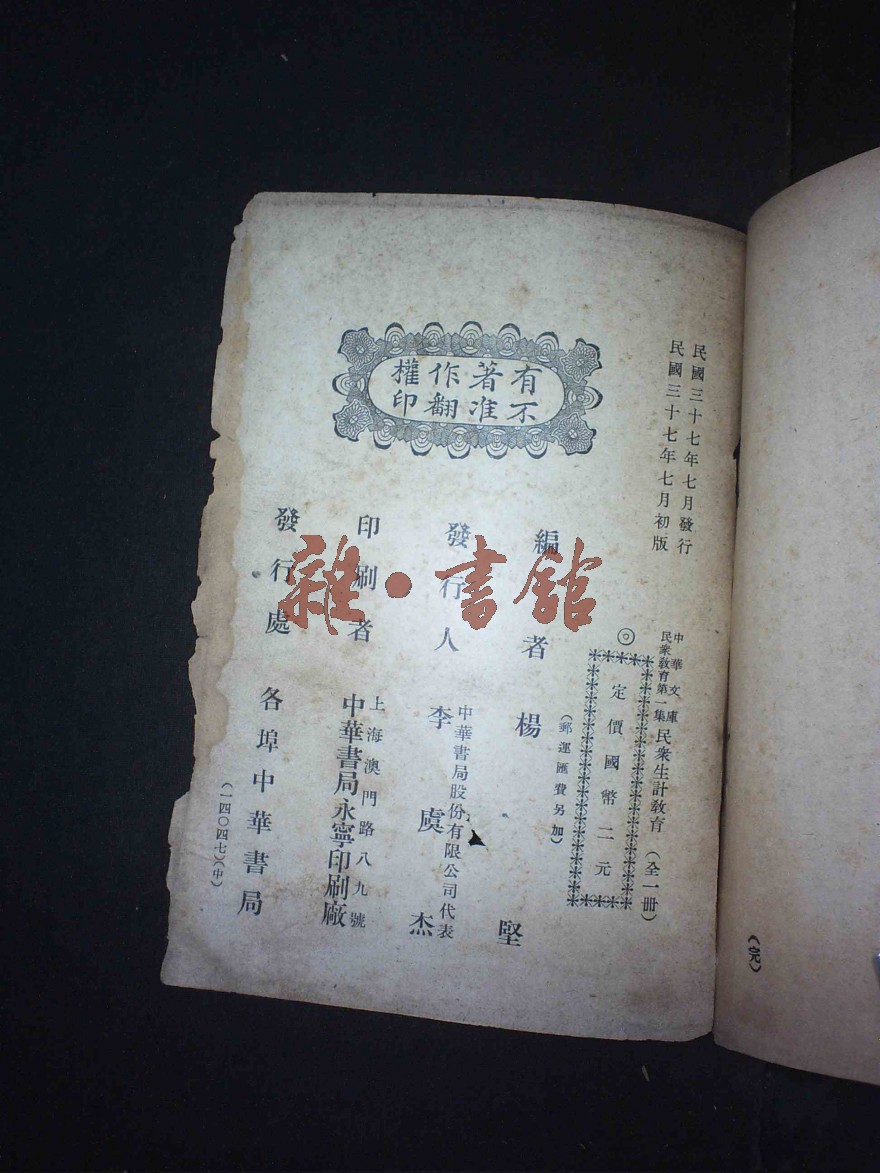 民國三十七年七月發行
民國三十七年七月初版
中華文庫
民衆教育第一集
民衆生計教育（全一册）
◎定價國幣二元
（郵運匯費另加）
有著作權
不准翻印
編者 楊堅
發行人 中華書局股份有限公司代表
李虞杰
印刷者 上海澳門路八九號
中華書局永寧印刷廠
發行處 各埠中華書局
（一四〇四七）（中）
（完）
雜·書館